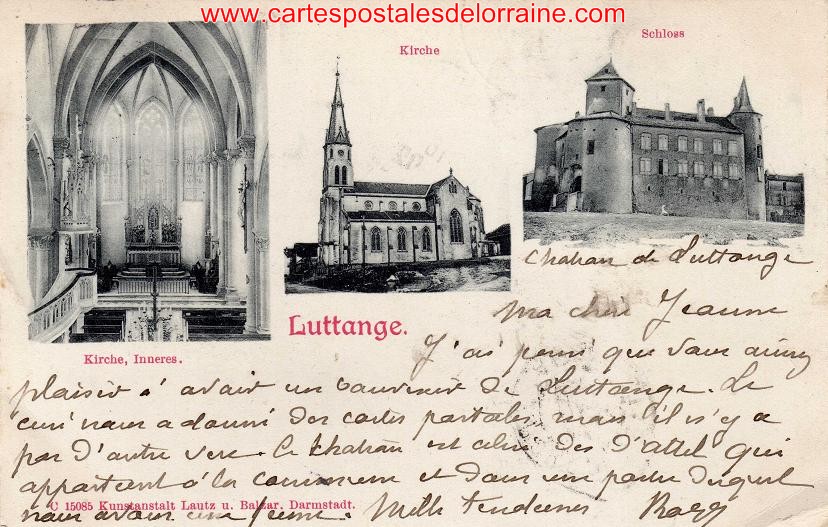 www.cartespostalesdelorraine.com
Kirche
Schloss
Chateau de Luttange
Luttange.
Kirche, Inneres.
Ma chère Jeanne
J'ai pensé que vous auriez
plaisir à avoir un souvenir de Luttange. Le
curé nous a donné des cartes postales, mais il n'y a
pas d'autre vue. Ce chateau est celui des d'Attel qui
appartient à la commune et dans une partie duquel
nous avons une ferme. Mille tendresses
C 15085 Kunstanstalt Lautz u. Balzar. Darmstadt.